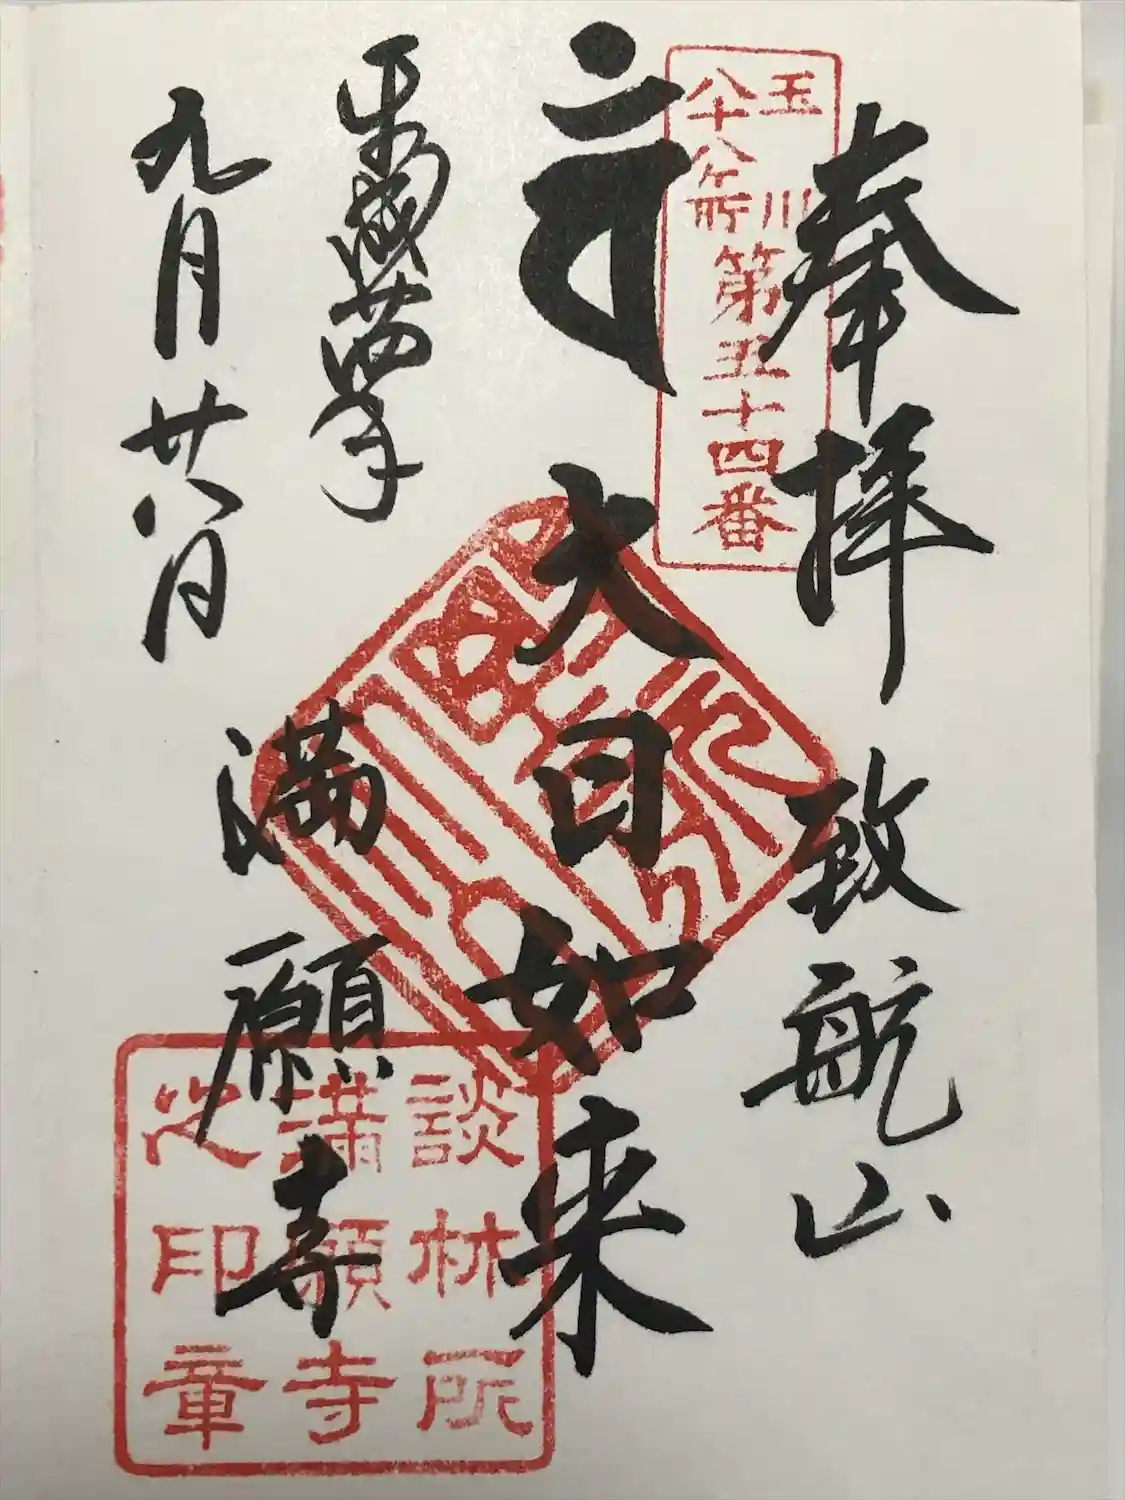 奉拝 致航山
玉川
八十八ヶ所
第五十四番
大日如来
平成廿四年
九月廿八日
満願寺
談林所
満願寺
之印章